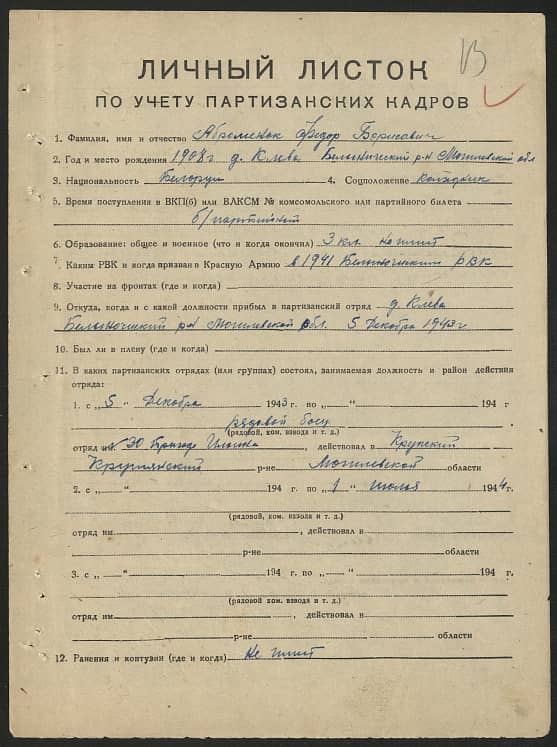 ЛИЧНЫЙ ЛИСТОК
ПО УЧЕТУ ПАРТИЗАНСКИХ КАДРОВ
1. Фамилия, имя и отчество Абраменок Федор Борисович
2. Год и место рождения 1908 г д. Клева Белыничский р-н Могилевской обл
3. Национальность Белорус 4. Соцположение колхозник
5. Время поступления в ВКП(б) или ВЛКСМ № комсомольского или партийного билета
б/партийный
6. Образование: общее и военное (что и когда окончил) 3 кл.
7. Каким РВК и когда призван в Красную Армию в 1941 Белыничским РВК
8. Участие на фронтах (где и когда)
9. Откуда, когда и с какой должности прибыл в партизанский отряд д. Клева
Белыничский р-н Могилевской обл. 5 Декабря 1943 г
10. Был ли в плену (где и когда)
11. В каких партизанских отрядах (или группах) состоял, занимаемая должность и район действия
отряда:
1. с „5" Декабря 1943 г. по „ " 194 г
рядовой боец
(рядовой, ком. взвода и т. д.)
отряд им. 30 бригад , действовал в Крупский
р-не Могилевской области
2. с „ " 194 г. по „1" июля 1944 г.
(рядовой, ком. взвода и т. д.)
отряд им. , действовал в
р-не области
3. с „ " 194 г. по „ " 194 г.
(рядовой, ком. взвода и т. д.)
отряд им. , действовал в
р-не области
12. Ранения и контузии (где и когда) Не